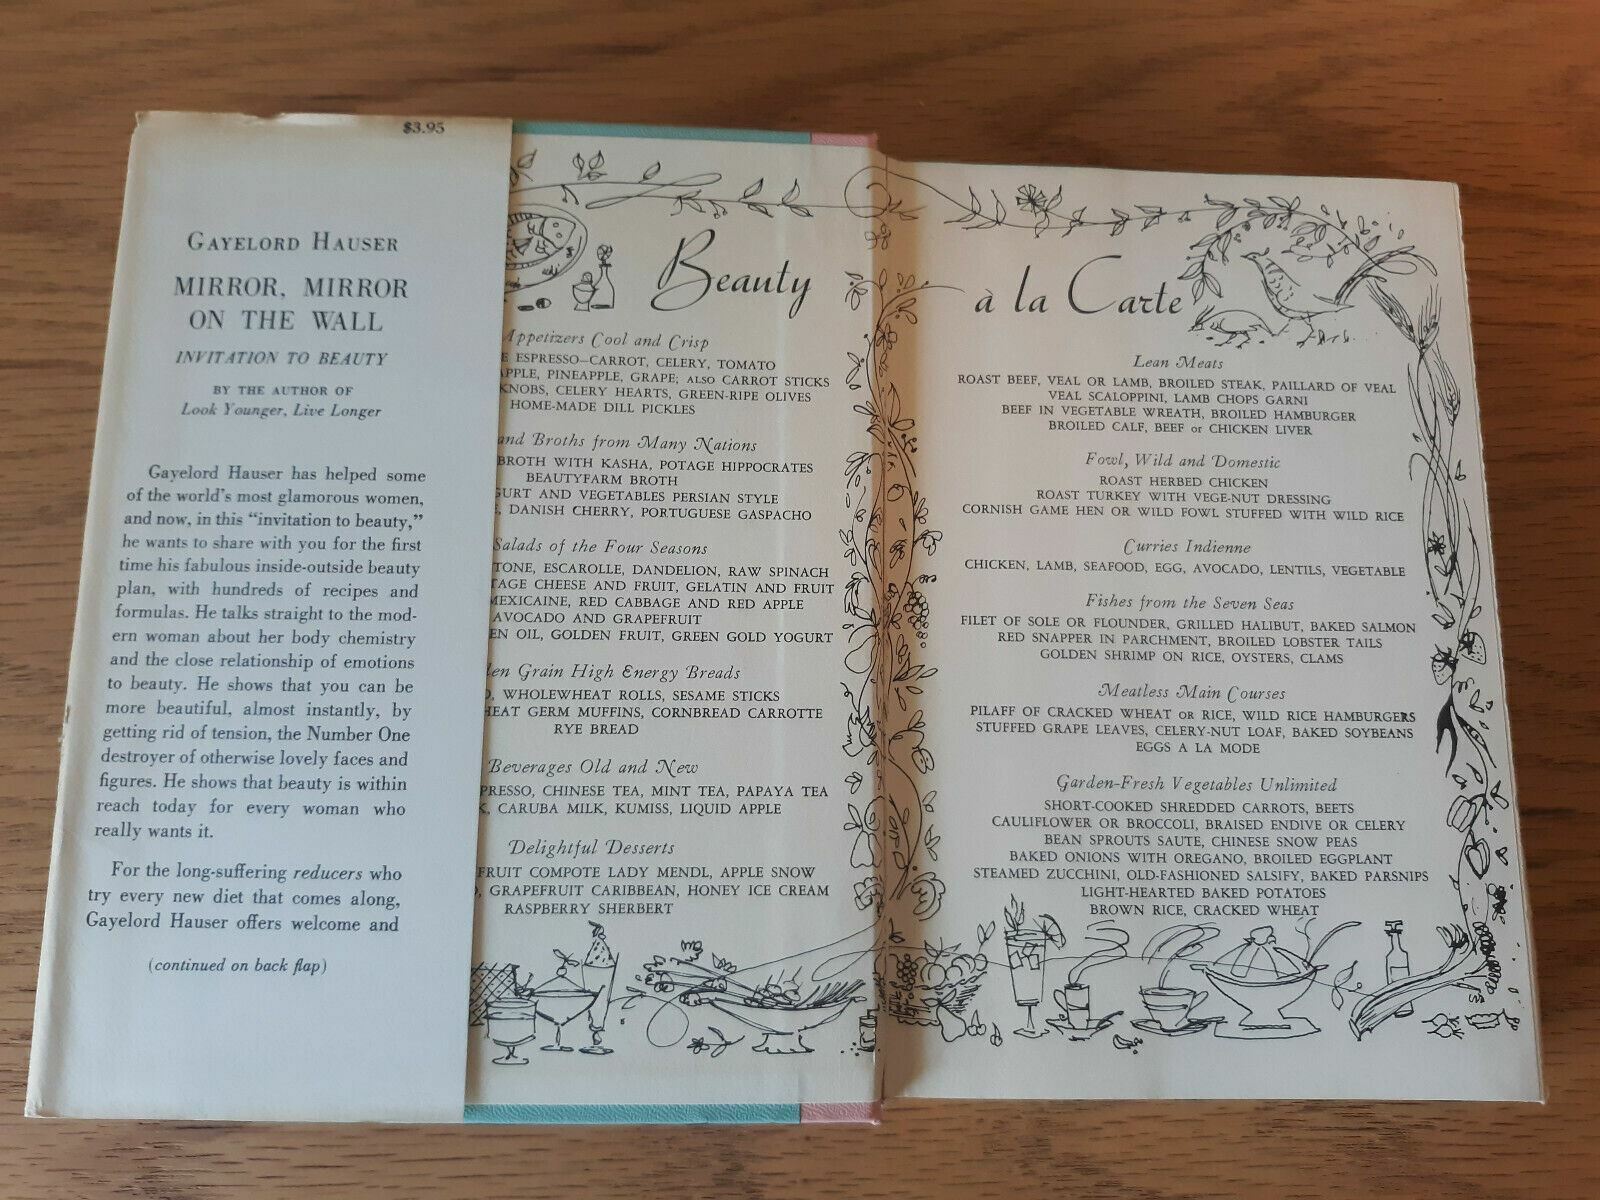 $3.95
GAYELORD HAUSER
MIRROR, MIRROR
ON THE WALL
INVITATION TO BEAUTY
BY THE AUTHOR OF
Look Younger, Live Longer
Gayelord Hauser has helped some
of the world's most glamorous women,
and now, in this "invitation to beauty,"
he wants to share with you for the first
time his fabulous inside-outside beauty
plan, with hundreds of recipes and
formulas. He talks straight to the mod-
ern woman about her body chemistry
and the close relationship of emotions
to beauty. He shows that you can be
more beautiful, almost instantly, by
getting rid of tension, the Number One
destroyer of otherwise lovely faces and
figures. He shows that beauty is within
reach today for every woman who
really wants it.
For the long-suffering reducers who
try every new diet that comes along,
Gayelord Hauser offers welcome and
(continued on back flap)
Beauty
Appetizers Cool and Crisp
ESPRESSO—CARROT, CELERY, TOMATO
APPLE, PINEAPPLE, GRAPE; ALSO CARROT STICKS
KNOBS, CELERY HEARTS, GREEN-RIPE OLIVES
HOME-MADE DILL PICKLES
and Broths from Many Nations
BROTH WITH KASHA, POTAGE HIPPOCRATES
BEAUTYFARM BROTH
GURT AND VEGETABLES PERSIAN STYLE
, DANISH CHERRY, PORTUGUESE GASPACHO
Salads of the Four Seasons
TONE, ESCAROLE, DANDELION, RAW SPINACH
TAGE CHEESE AND FRUIT, GELATIN AND FRUIT
MEXICAINE, RED CABBAGE AND RED APPLE
AVOCADO AND GRAPEFRUIT
EN OIL, GOLDEN FRUIT, GREEN GOLD YOGURT
den Grain High Energy Breads
, WHOLEWHEAT ROLLS, SESAME STICKS
HEAT GERM MUFFINS, CORNBREAD CARROTTE
RYE BREAD
Beverages Old and New
PRESSO, CHINESE TEA, MINT TEA, PAPAYA TEA
K, CARUBA MILK, KUMISS, LIQUID APPLE
Delightful Desserts
FRUIT COMPOTE LADY MENDL, APPLE SNOW
, GRAPEFRUIT CARIBBEAN, HONEY ICE CREAM
RASPBERRY SHERBERT
à la Carte
Lean Meats
ROAST BEEF, VEAL OR LAMB, BROILED STEAK, PAILLARD OF VEAL
VEAL SCALOPPINI, LAMB CHOPS GARNI
BEEF IN VEGETABLE WREATH, BROILED HAMBURGER
BROILED CALF, BEEF or CHICKEN LIVER
Fowl, Wild and Domestic
ROAST HERBED CHICKEN
ROAST TURKEY WITH VEGE-NUT DRESSING
CORNISH GAME HEN OR WILD FOWL STUFFED WITH WILD RICE
Curries Indienne
CHICKEN, LAMB, SEAFOOD, EGG, AVOCADO, LENTILS, VEGETABLE
Fishes from the Seven Seas
FILET OF SOLE OR FLOUNDER, GRILLED HALIBUT, BAKED SALMON
RED SNAPPER IN PARCHMENT, BROILED LOBSTER TAILS
GOLDEN SHRIMP ON RICE, OYSTERS, CLAMS
Meatless Main Courses
PILAFF OF CRACKED WHEAT OR RICE, WILD RICE HAMBURGERS
STUFFED GRAPE LEAVES, CELERY-NUT LOAF, BAKED SOYBEANS
EGGS A LA MODE
Garden-Fresh Vegetables Unlimited
SHORT-COOKED SHREDDED CARROTS, BEETS
CAULIFLOWER OR BROCCOLI, BRAISED ENDIVE OR CELERY
BEAN SPROUTS SAUTE, CHINESE SNOW PEAS
BAKED ONIONS WITH OREGANO, BROILED EGGPLANT
STEAMED ZUCCHINI, OLD-FASHIONED SALSIFY, BAKED PARSNIPS
LIGHT-HEARTED BAKED POTATOES
BROWN RICE, CRACKED WHEAT